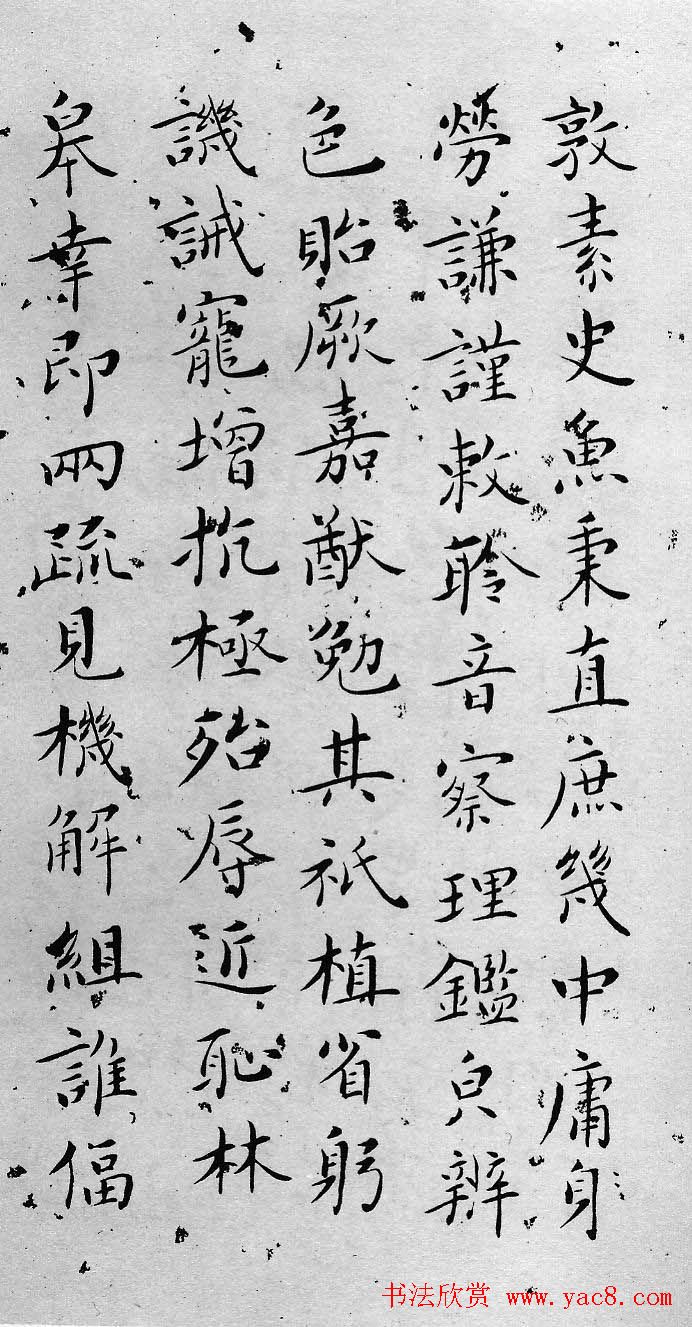 敦素史魚秉直庶幾中庸身
勞謙謹敕聆音察理鑑皃辨
色貽厥嘉猷勉其祗植省躬
譏誡寵增抗極殆辱近恥林
皋幸即兩疏見機解組誰偪
书法欣赏 www.yac8.com